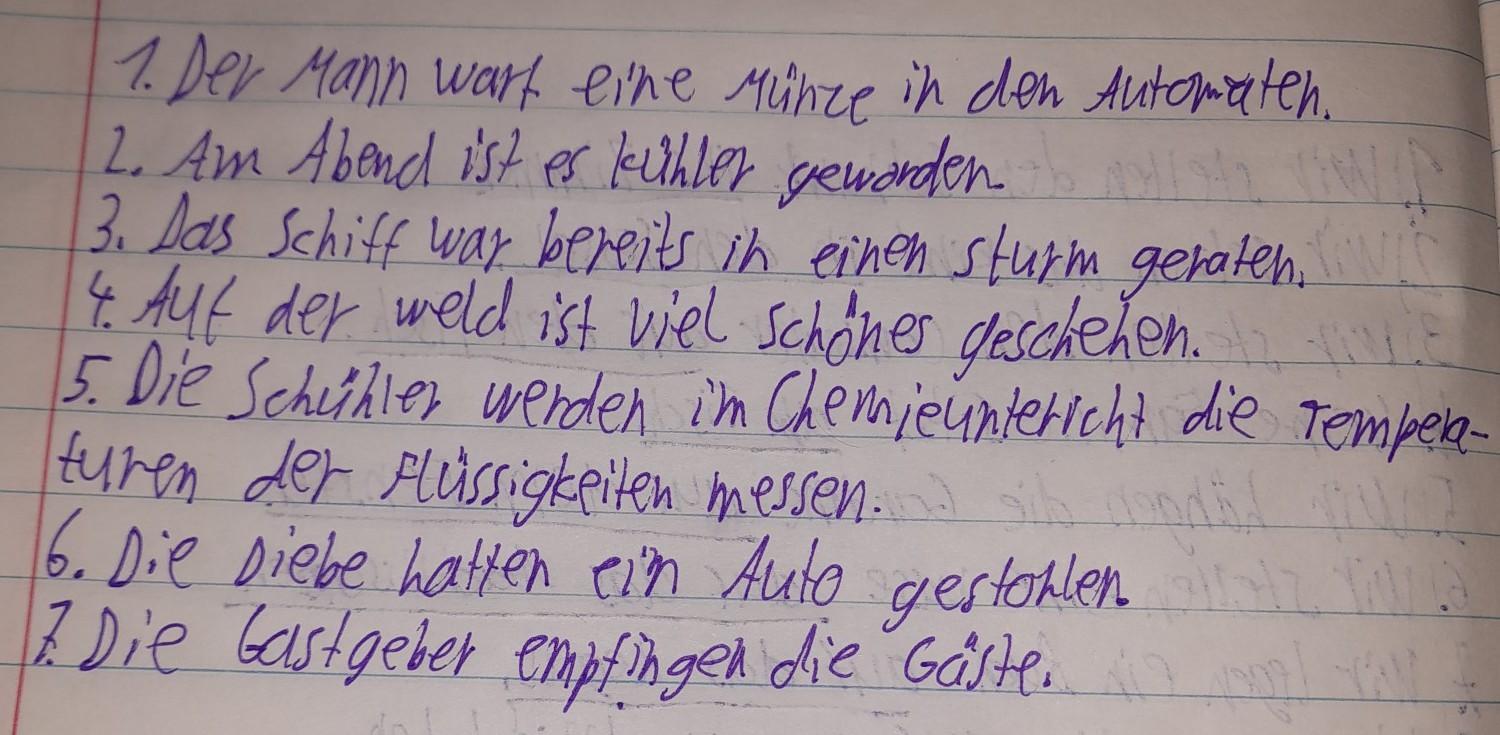 1. Der Mann warf eine Münze in den Automaten.
2. Am Abend ist es kühler geworden.
3. Das Schiff war bereits in einen Sturm geraten.
4. Auf der weld ist viel schönes geschehen.
5. Die Schühler werden im Chemieuntericht die Tempera-
turen der Flüssigkeiten messen.
6. Die Diebe hatten ein Auto gestohlen.
7. Die Gastgeber empfingen die Gäste.